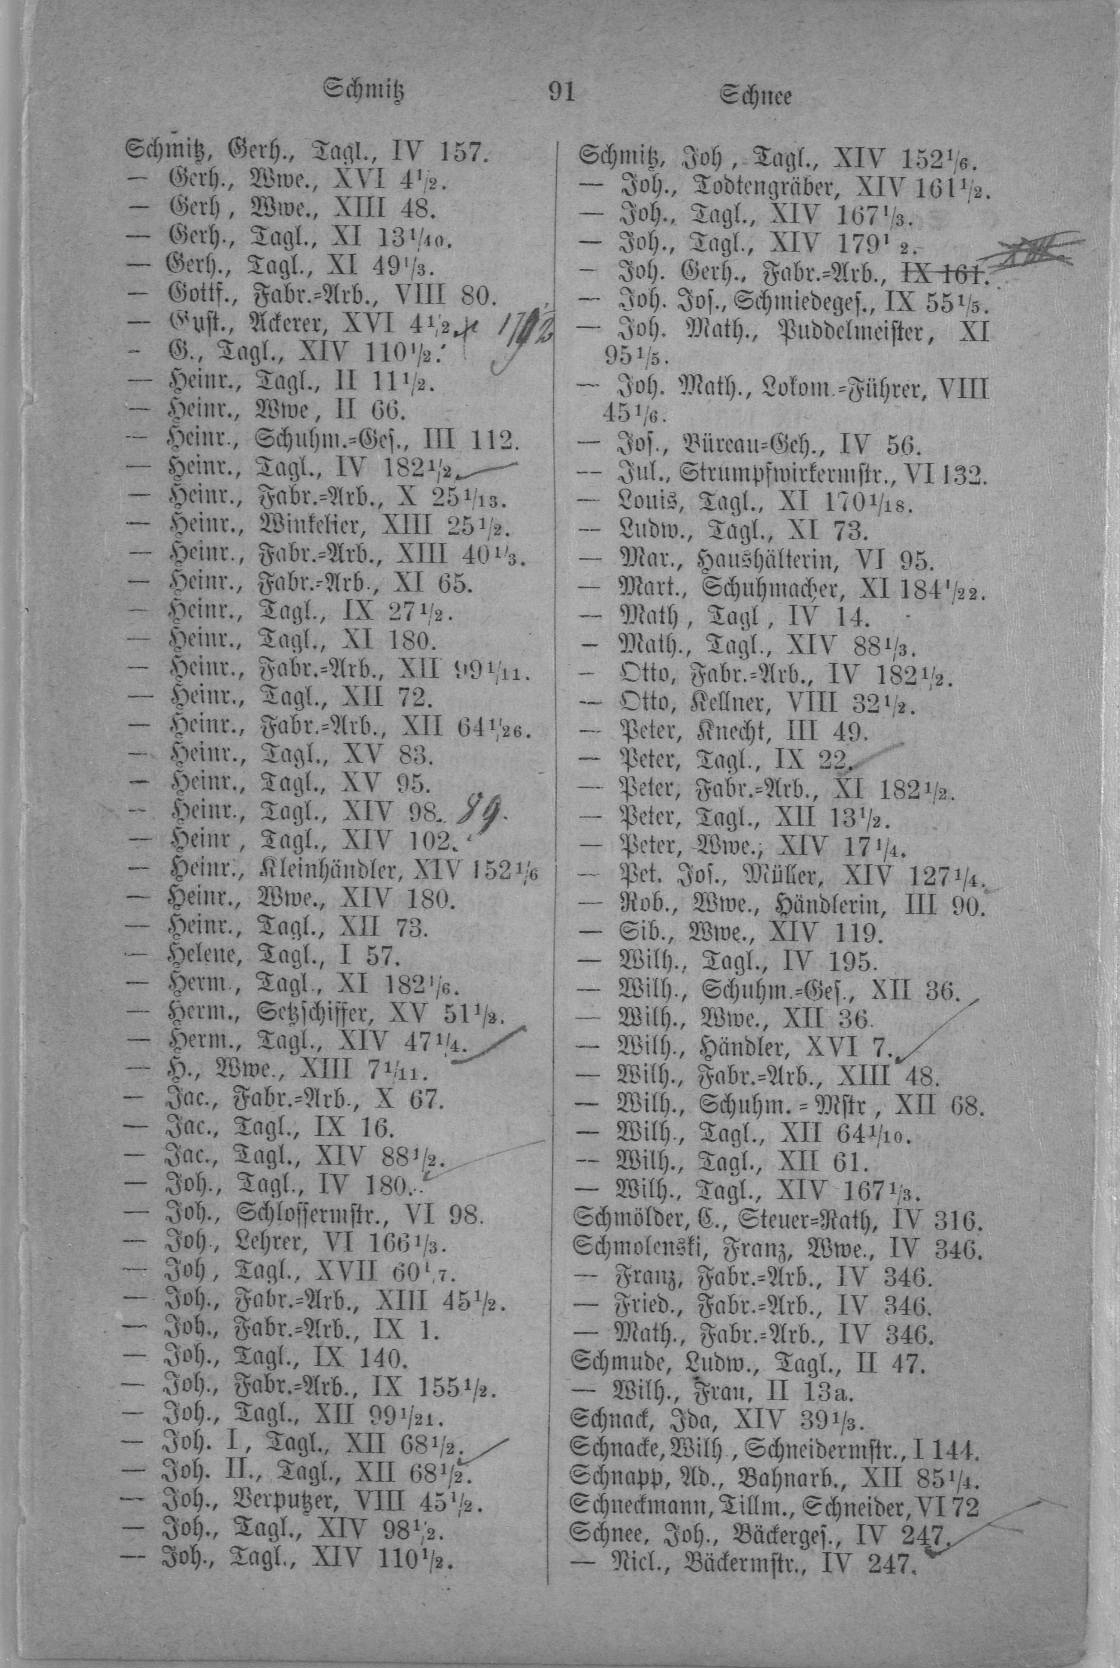 Schmitz
91
Schnee
Schmitz, Gerh., Tagl., IV 157.
— Gerh., Wwe., XVI 4 1/2.
— Gerh, Wwe., XIII 48.
— Gerh., Tagl., XI 13 1/40.
— Gerh., Tagl., XI 49 1/3.
— Gottf., Fabr.=Arb., VIII 80.
— Gust., Ackerer, XVI 4 1/2.
- G., Tagl., XIV 110 1/2.
— Heinr., Tagl., II 11 1/2.
— Heinr., Wwe, II 66.
— Heinr., Schuhm.=Ges., III 112.
— Heinr., Tagl., IV 182 1/2.
— Heinr., Fabr.=Arb., X 25 1/13.
— Heinr., Winkelier, XIII 25 1/2.
— Heinr., Fabr.=Arb., XIII 40 1/3.
— Heinr., Fabr.=Arb., XI 65.
— Heinr., Tagl., IX 27 1/2.
— Heinr., Tagl., XI 180.
— Heinr., Fabr.=Arb., XII 99 1/11.
— Heinr., Tagl., XII 72.
— Heinr., Fabr.=Arb., XII 64 1/26.
— Heinr., Tagl., XV 83.
— Heinr., Tagl., XV 95.
— Heinr., Tagl., XIV 98. 89.
— Heinr, Tagl., XIV 102.
— Heinr., Kleinhändler, XIV 152 1/6
— Heinr., Wwe., XIV 180.
— Heinr., Tagl., XII 73.
— Helene, Tagl., I 57.
— Herm., Tagl., XI 182 1/6.
— Herm., Setzschiffer, XV 51 1/2.
— Herm., Tagl., XIV 47 1/4.
— H., Wwe., XIII 7 1/11.
— Jac., Fabr.=Arb., X 67.
— Jac., Tagl., IX 16.
— Jac., Tagl., XIV 88 1/2.
— Joh., Tagl., IV 180.
— Joh., Schlossermstr., VI 98.
— Joh., Lehrer, VI 166 1/3.
— Joh, Tagl., XVII 60 1/7.
— Joh., Fabr.=Arb., XIII 45 1/2.
— Joh., Fabr.=Arb., IX 1.
— Joh., Tagl., IX 140.
— Joh., Fabr.=Arb., IX 155 1/2.
— Joh., Tagl., XII 99 1/21.
— Joh. I, Tagl., XII 68 1/2.
— Joh. II., Tagl., XII 68 1/2.
— Joh., Verputzer, VIII 45 1/2.
— Joh., Tagl., XIV 98 1/2.
— Joh., Tagl., XIV 110 1/2.
Schmitz, Joh, Tagl., XIV 152 1/6.
— Joh., Todtengräber, XIV 161 1/2.
— Joh., Tagl., XIV 167 1/3.
— Joh., Tagl., XIV 179 1 2.
— Joh. Gerh., Fabr.=Arb., IX 161.
— Joh. Jos., Schmiedeges., IX 55 1/5.
— Joh. Math., Puddelmeister, XI
95 1/5.
— Joh. Math., Lokom.=Führer, VIII
45 1/6.
— Jos., Büreau=Geh., IV 56.
— Jul., Strumpfwirkermstr., VI 132.
— Louis, Tagl., XI 170 1/18.
— Ludw., Tagl., XI 73.
— Mar., Haushälterin, VI 95.
— Mart., Schuhmacher, XI 184 1/22.
— Math, Tagl, IV 14.
— Math., Tagl., XIV 88 1/3.
— Otto, Fabr.=Arb., IV 182 1/2.
— Otto, Kellner, VIII 32 1/2.
— Peter, Knecht, III 49.
— Peter, Tagl., IX 22.
— Peter, Fabr.=Arb., XI 182 1/2.
— Peter, Tagl., XII 13 1/2.
— Peter, Wwe., XIV 17 1/4.
— Pet. Jos., Müller, XIV 127 1/4.
— Rob., Wwe., Händlerin, III 90.
— Sib., Wwe., XIV 119.
— Wilh., Tagl., IV 195.
— Wilh., Schuhm.=Ges., XII 36.
— Wilh., Wwe., XII 36.
— Wilh., Händler, XVI 7.
— Wilh., Fabr.=Arb., XIII 48.
— Wilh., Schuhm.=Mstr, XII 68.
— Wilh., Tagl., XII 64 1/10.
— Wilh., Tagl., XII 61.
— Wilh., Tagl., XIV 167 1/3.
Schmölder, C., Steuer=Rath, IV 316.
Schmolenski, Franz, Wwe., IV 346.
— Franz, Fabr.=Arb., IV 346.
— Fried., Fabr.=Arb., IV 346.
— Math., Fabr.=Arb., IV 346.
Schmude, Ludw., Tagl., II 47.
— Wilh., Frau, II 13a.
Schnack, Ida, XIV 39 1/3.
Schnacke, Wilh., Schneidermstr., I 144.
Schnapp, Ad., Bahnarb., XII 85 1/4.
Schneckmann, Tillm., Schneider, VI 72
Schnee, Joh., Bäckerges., IV 247.
— Nicl., Bäckermstr., IV 247.